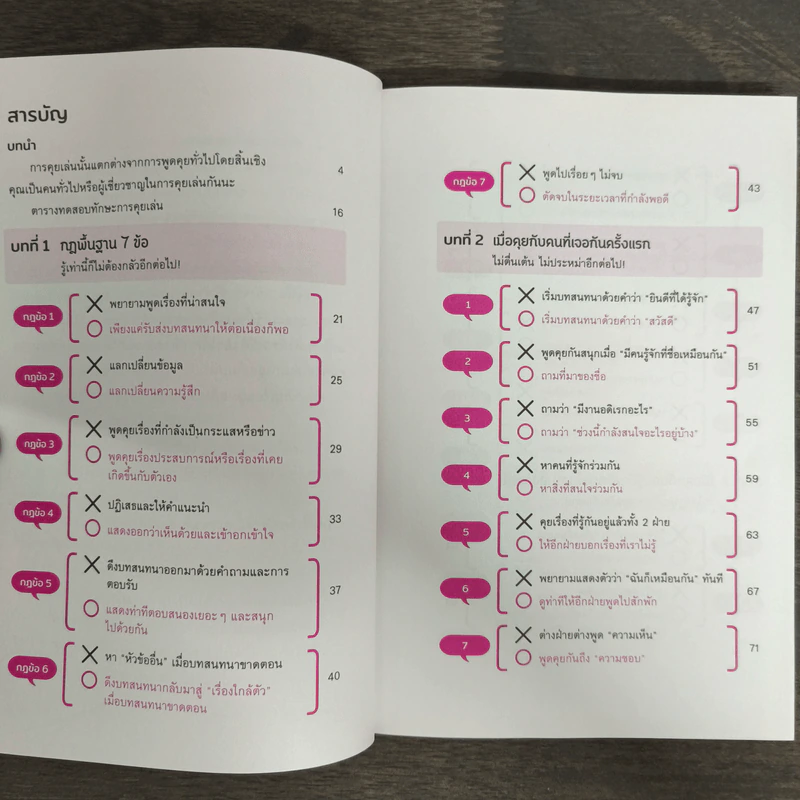 สารบัญ
บทนำ
การคุยเล่นนั้นแตกต่างจากการพูดคุยทั่วไปโดยสิ้นเชิง 4
คุณเป็นคนทั่วไปหรือผู้เชี่ยวชาญในการคุยเล่นกันนะ
ตารางทดสอบทักษะการคุยเล่น 16
บทที่ 1 กฎพื้นฐาน 7 ข้อ
รู้เท่านี้ก็ไม่ต้องกลัวอีกต่อไป!
กฎข้อ 1
พยายามพูดเรื่องที่น่าสนใจ
เพียงแค่รับส่งบทสนทนาให้ต่อเนื่องก็พอ
21
กฎข้อ 2
แลกเปลี่ยนข้อมูล
แลกเปลี่ยนความรู้สึก
25
กฎข้อ 3
พูดคุยเรื่องที่กำลังเป็นกระแสหรือข่าว
พูดคุยเรื่องประสบการณ์หรือเรื่องที่เคย
เกิดขึ้นกับตัวเอง
29
กฎข้อ 4
ปฏิเสธและให้คำแนะนำ
แสดงออกว่าเห็นด้วยและเข้าอกเข้าใจ
33
กฎข้อ 5
ดึงบทสนทนาออกมาด้วยคำถามและการ
ตอบรับ
แสดงท่าทีตอบสนองเยอะ ๆ และสนุก
ไปด้วยกัน
37
กฎข้อ 6
หา “หัวข้ออื่น” เมื่อบทสนทนาขาดตอน
ดึงบทสนทนากลับมาสู่ “เรื่องใกล้ตัว”
เมื่อบทสนทนาขาดตอน
40
กฎข้อ 7
พูดไปเรื่อย ๆ ไม่จบ
ตัดจบในระยะเวลาที่กำลังพอดี
43
บทที่ 2 เมื่อคุยกับคนที่เจอกันครั้งแรก
ไม่ตื่นเต้น ไม่ประหม่าอีกต่อไป!
1
เริ่มบทสนทนาด้วยคำว่า “ยินดีที่ได้รู้จัก”
เริ่มบทสนทนาด้วยคำว่า “สวัสดี”
47
2
พูดคุยกันสนุกเมื่อ “มีคนรู้จักที่ชื่อเหมือนกัน”
ถามที่มาของชื่อ
51
3
ถามว่า “มีงานอดิเรกอะไร”
ถามว่า “ช่วงนี้กำลังสนใจอะไรอยู่บ้าง”
55
4
หาคนที่รู้จักร่วมกัน
หาสิ่งที่สนใจร่วมกัน
59
5
คุยเรื่องที่รู้กันอยู่แล้วทั้ง 2 ฝ่าย
ให้อีกฝ่ายบอกเรื่องที่เราไม่รู้
63
6
พยายามแสดงตัวว่า “ฉันก็เหมือนกัน” ทันที
ดูท่าทีให้อีกฝ่ายพูดไปสักพัก
67
7
ต่างฝ่ายต่างพูด “ความเห็น”
พูดคุยกันถึง “ความชอบ”
71